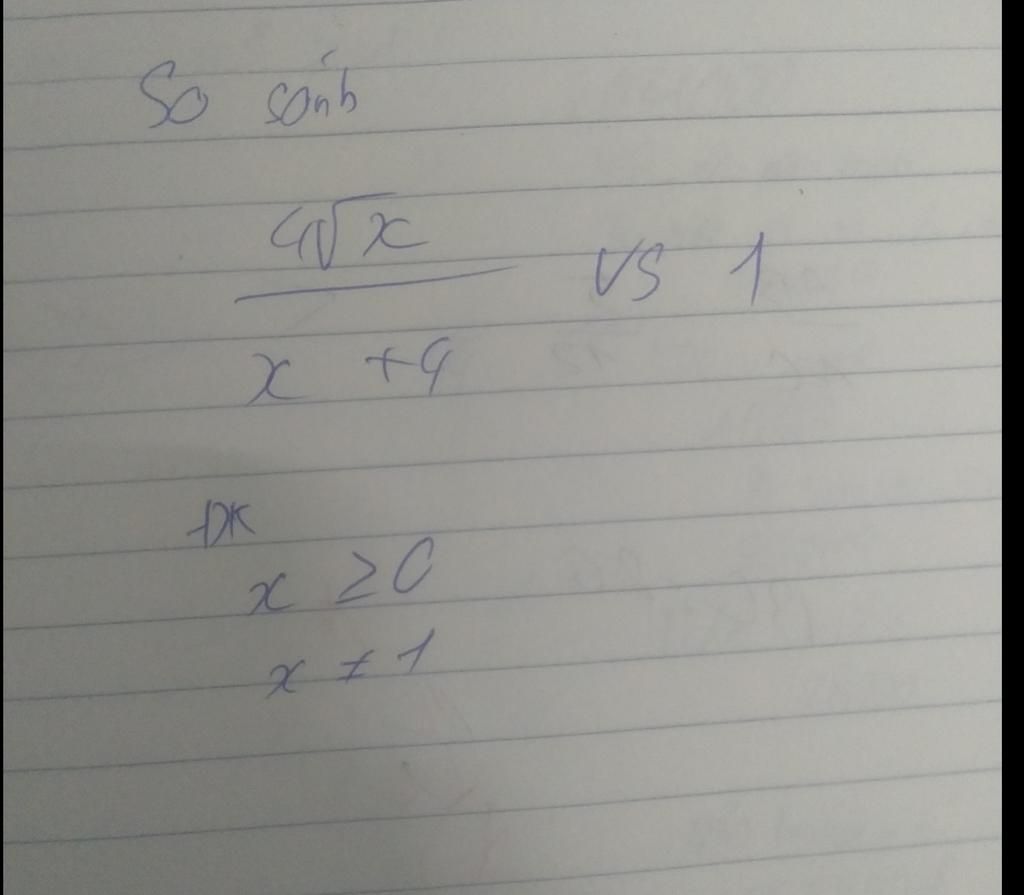 So sánh
4√x
x + 4 vs 1
ĐK
x ≥ 0
x ≠ 1